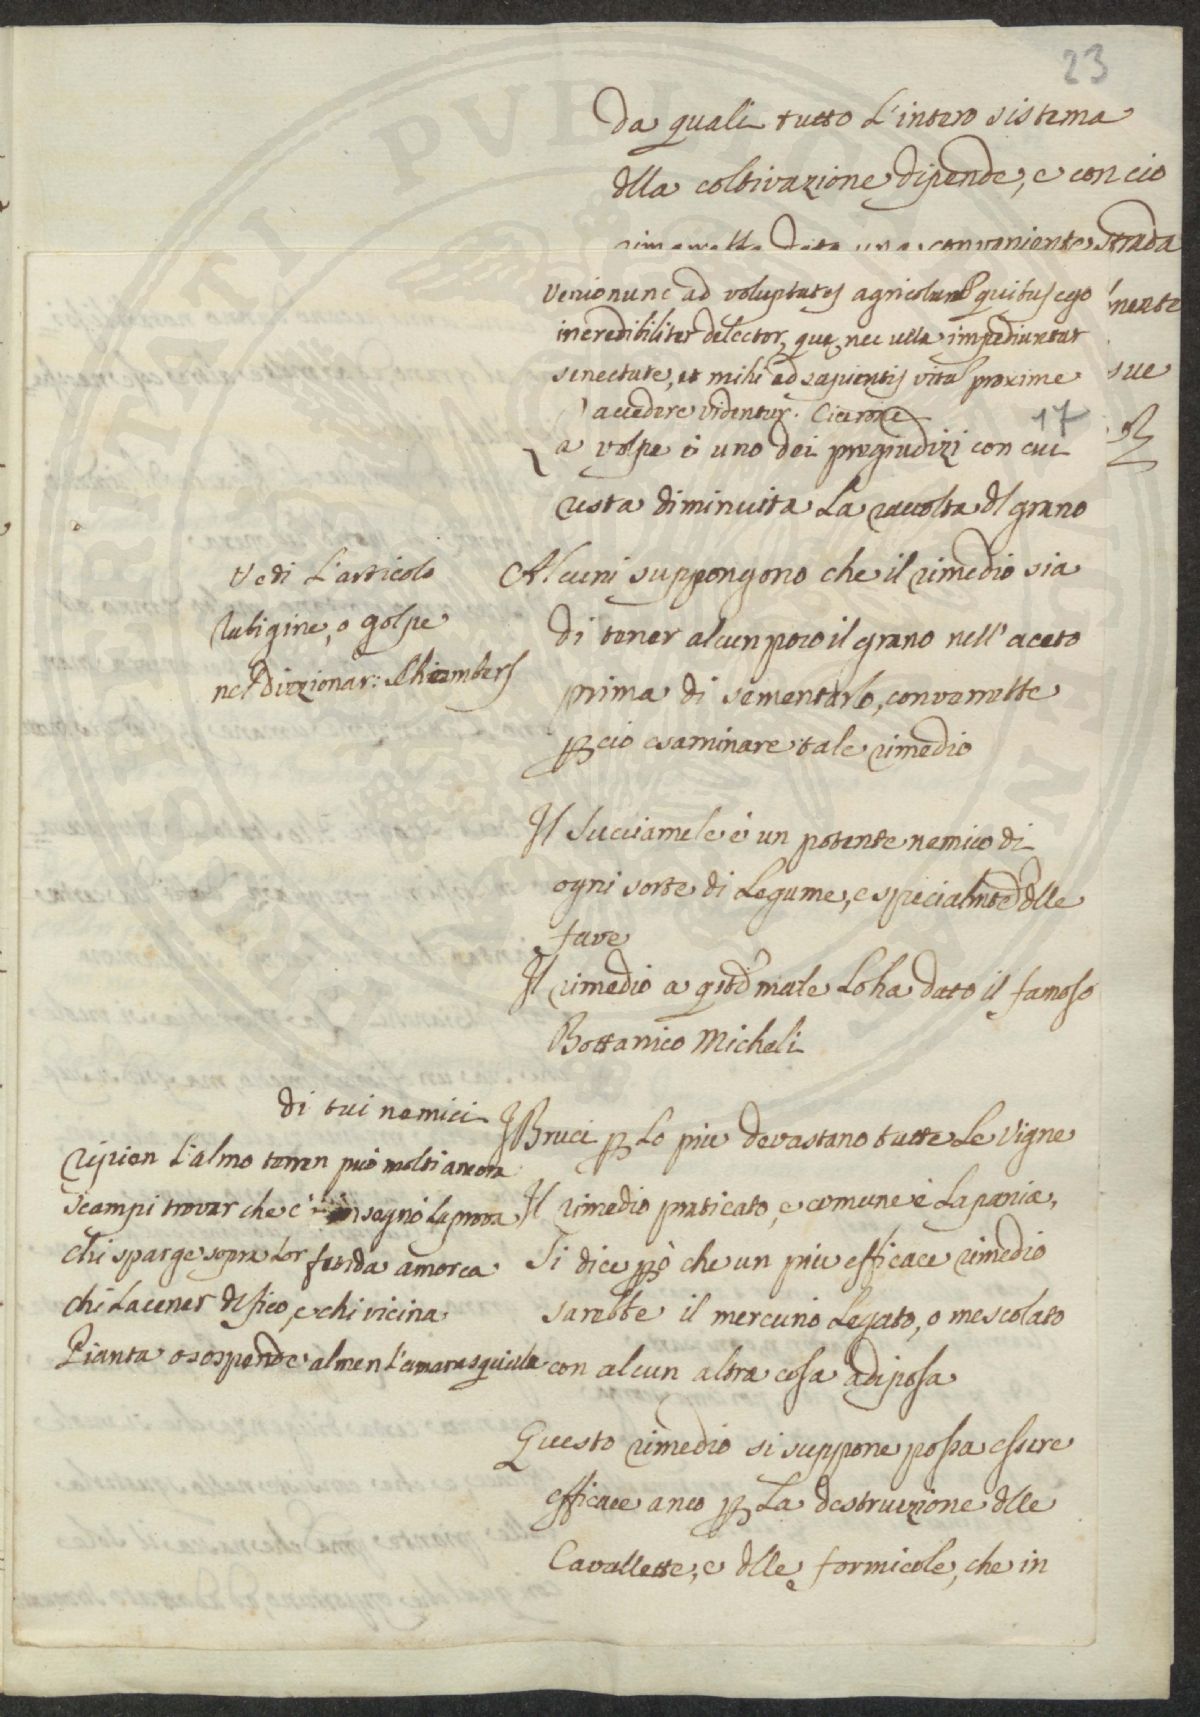 23
da quali tutto l'intero sistema
dlla coltivazione dipende, e con ciò
data una conveniente strada
nente
sue
Venio nunc ad voluptates agricolarum quibus ego
incredibiliter delector, quæ nec ulla impediuntur
senectute, et mihi ad sapientis vitam proxime
accedere videntur. Cicerone
17
La volpe è uno dei pregiudizi con cui
resta diminuita la raccolta dl grano
Vedi l'articolo
Rubigine, o golpe
nel dizzionar: Chiambers
Alcuni suppongono che il rimedio sia
di tener alcun poco il grano nell'aceto
prima di sementarlo, converrebbe
p ciò esaminare tale rimedio
Il Succiamele è un potente nemico di
ogni sorte di Legume, e specialmte dlle
fave
Il rimedio a qsto male lo ha dato il famoso
Bottanico Micheli
di tui nemici
ripien l'almo terren può molti ancora
scampi trovar che c'insegnò la prova
chi sparge sopra lor fetida amorca
chi la cener dl fico, e chi vicina
Pianta o sospende almen l'amara squilla
I Bruci p lo più devastano tutte le Vigne
Il rimedio praticato, e comune è la pania,
Si dice pò che un più efficace rimedio
sarebbe il mercurio legato, o mescolato
con alcun altra cosa adiposa
Questo rimedio si suppone possa essere
efficace anco p la destruzione dlle
Cavallette, e dlle formicole, che in